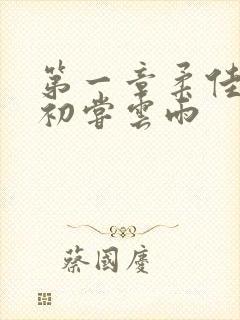 第一章柔佳
初嘗雲雨
蔡國慶